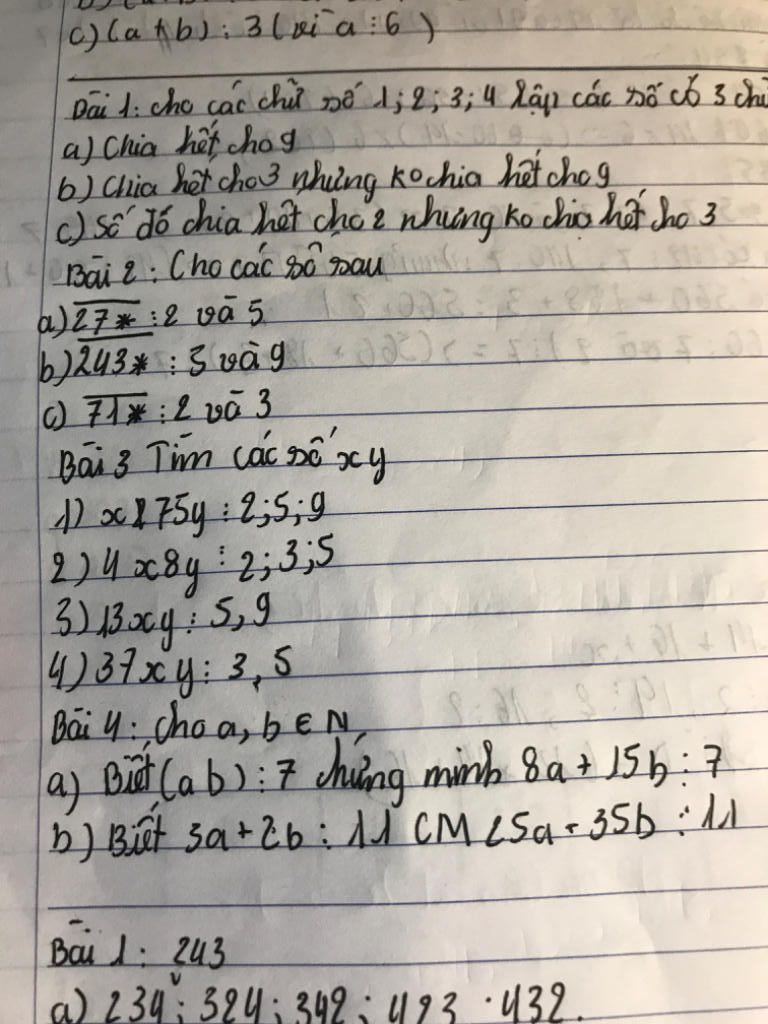 c) (a+b) ⋮ 3 (với a ⋮ 6)
Bài 1: cho các chữ số 1; 2; 3; 4 lập các số có 3 chữ
a) Chia hết cho 9
b) Chia hết cho 3 nhưng ko chia hết cho 9
c) Số đó chia hết cho 2 nhưng ko chia hết cho 3
Bài 2: Cho các số sau
a) 27* ⋮ 2 và 5
b) 243* ⋮ 5 và 9
c) 71* ⋮ 2 và 3
Bài 3 Tìm các số x y
1) x275y ⋮ 2; 5; 9
2) 4x8y ⋮ 2; 3; 5
3) 13xy ⋮ 5, 9
4) 37xy ⋮ 3, 5
Bài 4: cho a, b ∈ N,
a) Biết (ab) ⋮ 7 chứng minh 8a + 15b ⋮ 7
b) Biết 3a + 2b ⋮ 11 CM 25a - 35b ⋮ 11
Bài 1: 243
a) 234; 324; 342; 423; 432.